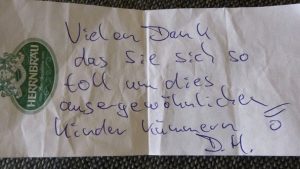 Vielen Dank
das Sie sich so
toll um dies
ausergewöhnlichen
Kinder kümmern
D.H.
HERRNBRÄU